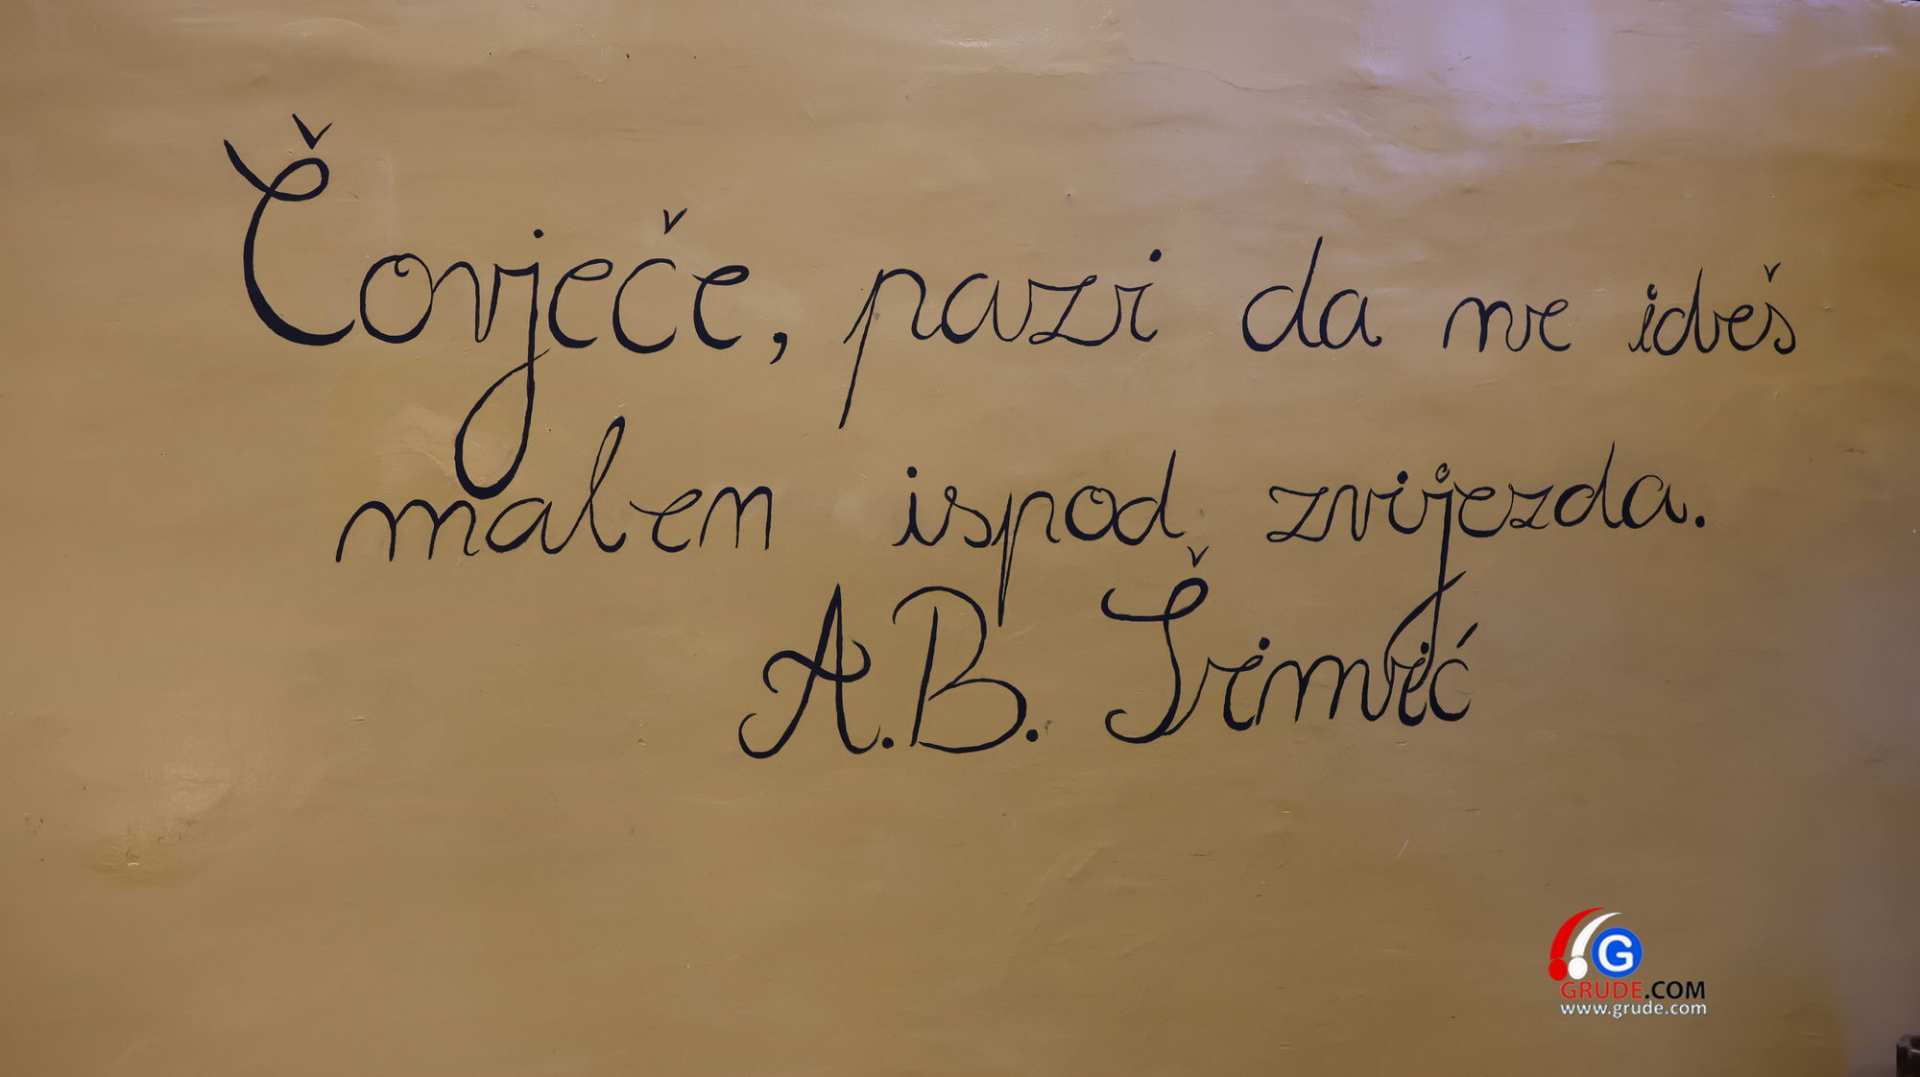 Čovječe, pazi da ne ideš
malen ispod zvijezda.
A.B. Šimić
G
GRUDE.COM
www.grude.com